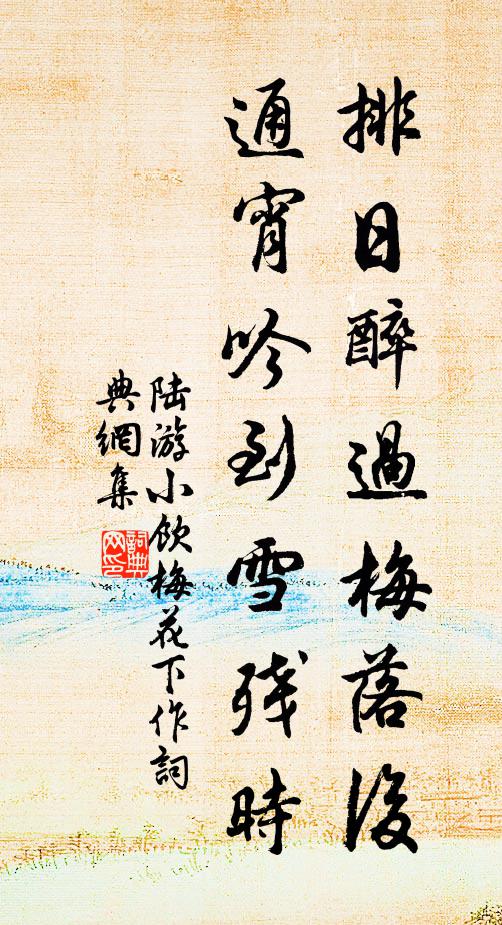 排日醉過梅落後
通宵吟到雪残時
陆游小飲梅花下作詞
典網集
詞典网印